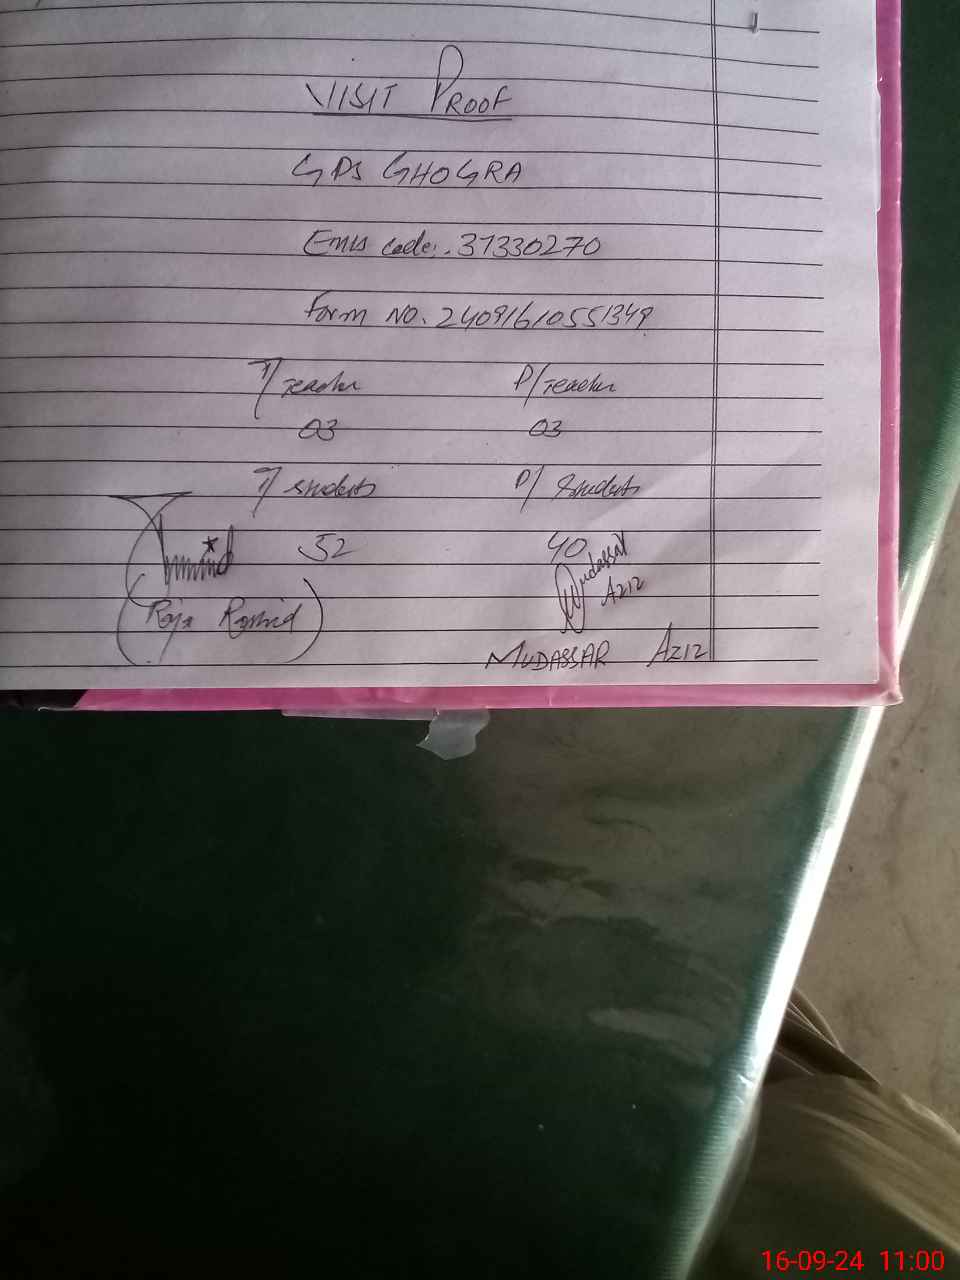 VISIT PROOF
GPS GHOGRA
Emis code: 37330270
Form NO. 24091610551349
T/ Teacher P/ Teacher
03 03
T/ students P/ Students
52 40
Mudassar
Aziz
Raja Rashid
MUDASSAR AZIZ
16-09-24 11:00